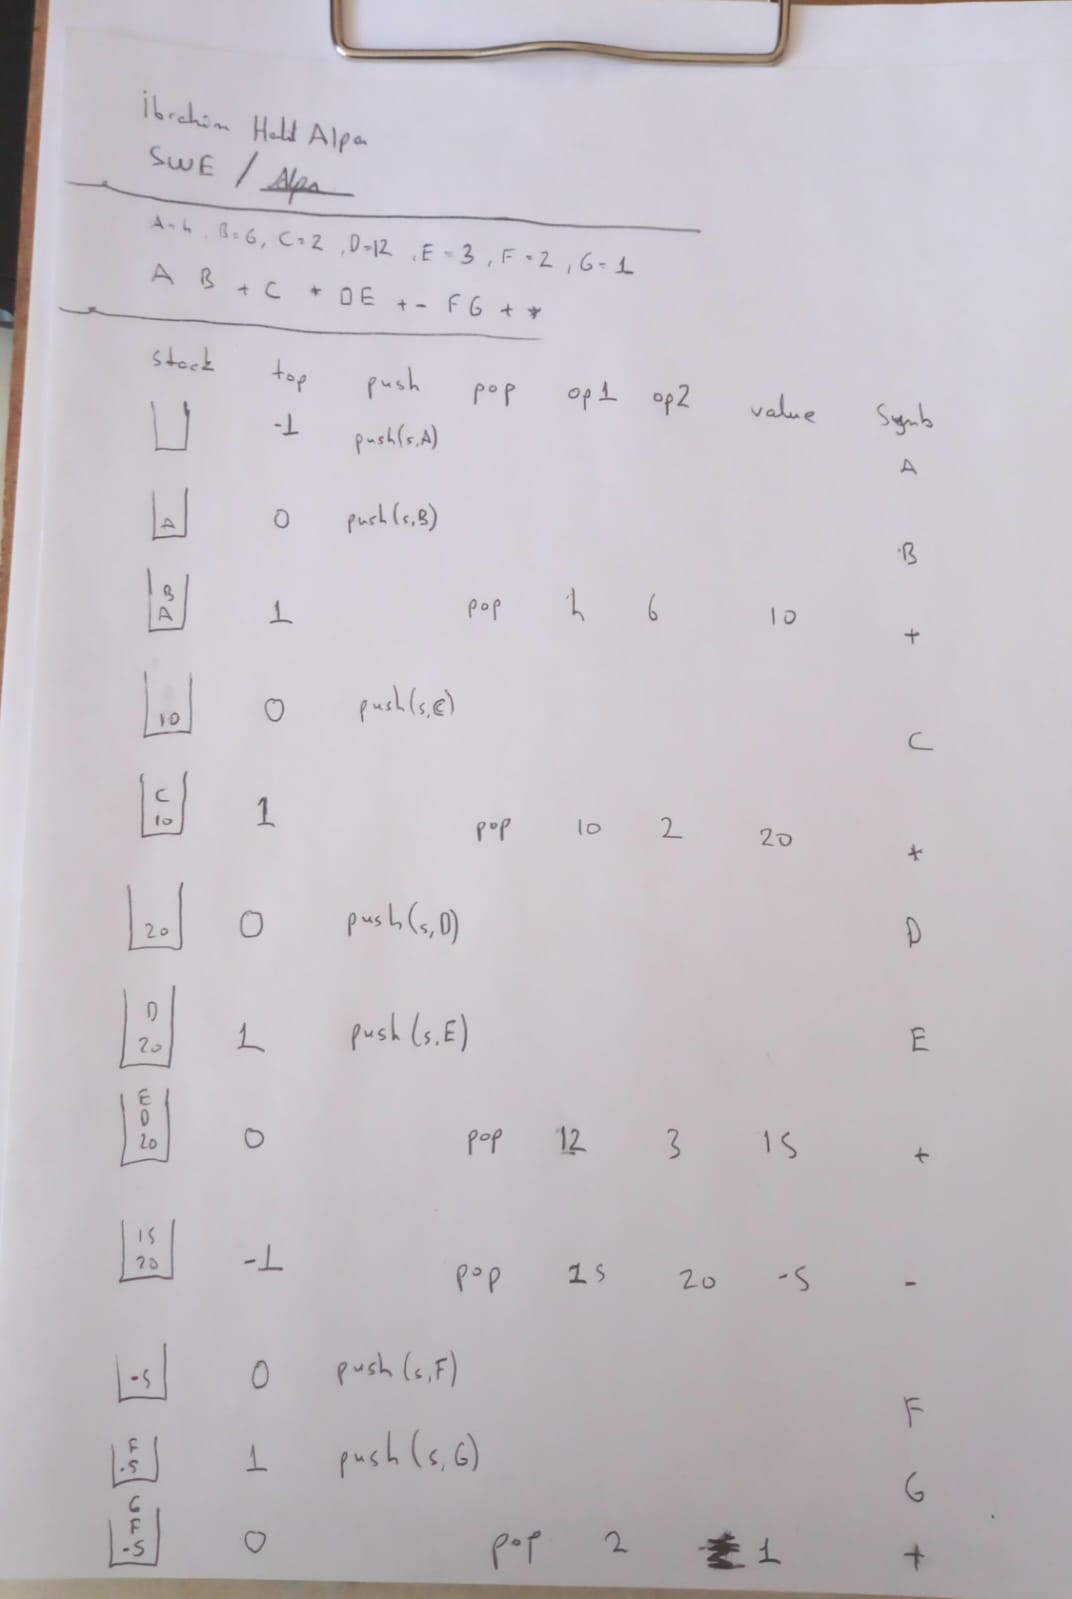 ibrahim Halil Alpa
SWE / Alpa
A=4, B=6, C=2, D=12, E=3, F=2, G=1
A B + C * D E + - F G + *
stack top push pop op1 op2 value Symb
-1 push(s,A) A
A 0 push(s,B) B
B A 1 pop 4 6 10 +
10 0 push(s,C) C
C 10 1 pop 10 2 20 *
20 0 push(s,D) D
D 20 1 push(s,E) E
E D 20 0 pop 12 3 15 +
15 20 -1 pop 15 20 -5 -
-5 0 push(s,F) F
F -5 1 push(s,G) G
G F -5 0 pop 2 1 +